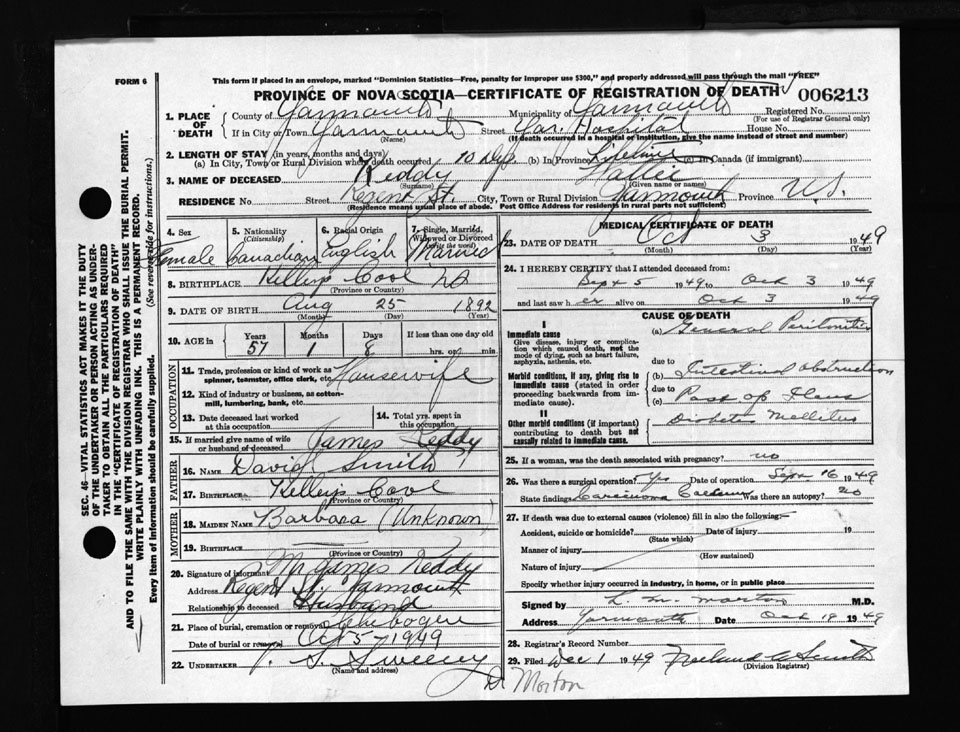 FORM 6
This form if placed in an envelope, marked "Dominion Statistics—Free, penalty for improper use $300," and properly addressed will pass through the mail "FREE"
PROVINCE OF NOVA SCOTIA—CERTIFICATE OF REGISTRATION OF DEATH
006213
1. PLACE OF DEATH
County of Yarmouth Municipality of Yarmouth Registered No.
(For use of Registrar General only)
If in City or Town Yarmouth Street Yar. Hospital House No.
(Name) (If death occurred in a hospital or institution, give the name instead of street and number)
2. LENGTH OF STAY (in years, months and days)
(a) In City, Town or Rural Division where death occurred 10 Days (b) In Province Lifetime (c) in Canada (if immigrant)
3. NAME OF DECEASED Reddy
(Surname) (Given name or names)
RESIDENCE No. Street Regent St. City, Town or Rural Division Yarmouth Province N.S.
(Residence means usual place of abode. Post Office Address for residents in rural parts not sufficient)
4. Sex 5. Nationality (Citizenship) 6. Racial Origin 7. Single, Married, Widowed or Divorced (write the word)
Female Canadian English Married
8. BIRTHPLACE Kelleys Cove NS
(Province or Country)
9. DATE OF BIRTH Aug 25 1892
(Month) (Day)
10. AGE in Years Months Days If less than one day old
57 1 8 hrs. or min.
OCCUPATION
11. Trade, profession or kind of work as spinner, teamster, office clerk, etc. Housewife
12. Kind of industry or business, as cotton-mill, lumbering, bank, etc.
13. Date deceased last worked at this occupation 14. Total yrs. spent in this occupation
15. If married give name of wife or husband of deceased James Reddy
FATHER
16. NAME David Smith
17. BIRTHPLACE Kelleys Cove
(Province or Country)
MOTHER
18. MAIDEN NAME Barbara (Unknown)
19. BIRTHPLACE
(Province or Country)
20. Signature of informant Mr James Reddy
Address Regent St Yarmouth
Relationship to deceased Husband
21. Place of burial, cremation or removal Chebogue
Date of burial or removal Oct 5 1949
22. UNDERTAKER J. S. Sweeny
(Name and address)
MEDICAL CERTIFICATE OF DEATH
23. DATE OF DEATH Oct 3 1949
(Month) (Day) (Year)
24. I HEREBY CERTIFY that I attended deceased from:
Sept 5 1949 to Oct 3 1949
and last saw her alive on Oct 3 1949
CAUSE OF DEATH
I
Immediate cause
Give disease, injury or complication which caused death, not the mode of dying, such as heart failure, asphyxia, asthenia, etc.
(a) General Peritonitis
due to
Morbid conditions, if any, giving rise to immediate cause (stated in order proceeding backwards from immediate cause).
(b) Intestinal obstruction
due to
(c) Post op Ileus
II
Other morbid conditions (if important) contributing to death but not causally related to immediate cause.
Diabetes Mellitus
25. If a woman, was the death associated with pregnancy? no
26. Was there a surgical operation? Yes Date of operation Sept 16 1949
State findings Carcinoma Was there an autopsy? no
27. If death was due to external causes (violence) fill in also the following:—
Accident, suicide or homicide? Date of injury 19
(State which)
Manner of injury
(How sustained)
Nature of injury
Specify whether injury occurred in industry, in home, or in public place
Signed by L. M. Morton M.D.
Address Yarmouth Date Oct 18 1949
28. Registrar's Record Number
29. Filed Dec 1 1949 Smith
(Division Registrar)
Dr Morton
SEC. 46—VITAL STATISTICS ACT MAKES IT THE DUTY
OF THE UNDERTAKER OR PERSON ACTING AS UNDER-
TAKER TO OBTAIN ALL THE PARTICULARS REQUIRED
IN THE "CERTIFICATE OF REGISTRATION OF DEATH"
AND TO FILE THE SAME WITH THE DIVISION REGISTRAR WHO SHALL ISSUE THE BURIAL PERMIT.
WRITE PLAINLY WITH UNFADING INK. THIS IS A PERMANENT RECORD.
Every item of information should be carefully supplied. (See reverse side for instructions.)